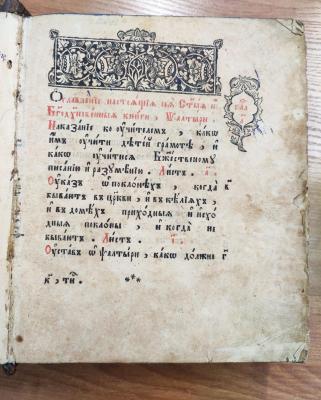 Ѻглавле́нїе настоѧ́щїѧ сеѧ̀ Ст҃ы́ѧ и҆
Бг҃одꙋхнове́нныѧ кни́ги , Ѱалты́ри .
Наказа́нїе ко ᲂу҆чи́телемъ , ка́кѡ
и҆́мъ ᲂу҆чи́ти дѣте́й гра́мотѣ , и҆
ка́кѡ ᲂу҆чи́тисѧ Бж҃е́ственомꙋ
писа́нїю и҆ разꙋмѣ́нїю . Ли́стъ . а҃ .
Оу҆ка́зъ ѡ҆ покло́нехъ , когда̀ в
быва́ютъ въ цр҃кви , и҆ въ ке́лїѧхъ ,
и҆ въ домѣ́хъ прихо́дныѧ и҆ и҆схо́
дныѧ покло́ны , и҆ когда̀ не
быва́ютъ . Ли́стъ .
Оу҆ста́въ ѡ҆ ѱалты́ри , ка́кѡ до́лжно